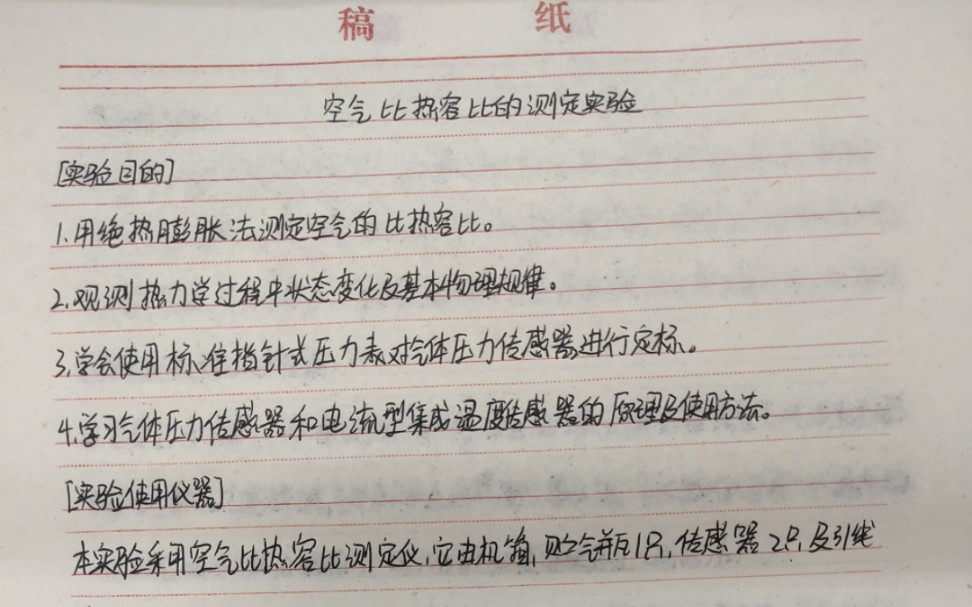 稿 纸
空气比热容比的测定实验
[实验目的]
1.用绝热膨胀法测定空气的比热容比。
2.观测热力学过程中状态变化及基本物理规律。
3.学会使用标准指针式压力表对气体压力传感器进行定标。
4.学习气体压力传感器和电流型集成温度传感器的原理及使用方法。
[实验使用仪器]
本实验采用空气比热容比测定仪,它由机箱,贮气瓶1只,传感器2只及引线